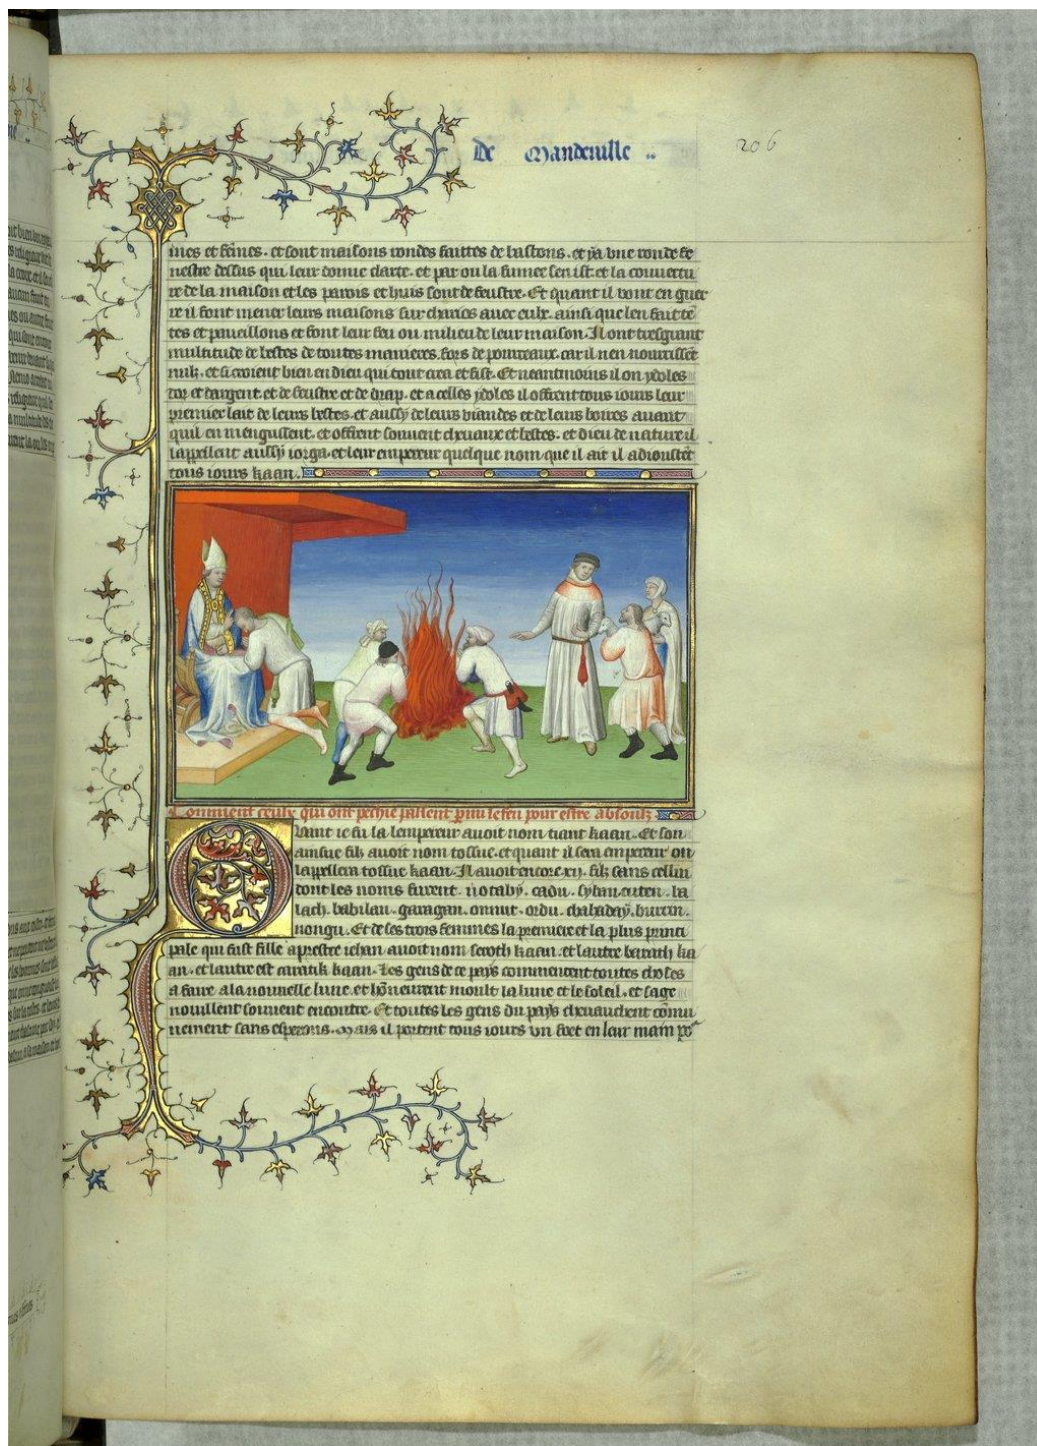 De Mandeville ..
206
mes et fẽmes. et sont maisons rondes faittes de bastons. et ya vne ronde fe
nestre dessus qui leur donne clarte. et par ou la fumee sen ist. et la couuertu
re de la maison et les parois et huis sont de feustre. Et quant il vont en guer
re il font mener leurs maisons sur chariós auec eulx. ainsi que len fait tẽ
tes et paueillons et font leur feu ou milieu de leur maison. Il ont tresgrant
multitude de bestes de toutes manieres. fors de pourceaux. car il nen nourrissẽt
nulz. et si croient bien en dieu qui tout crea et fist. Et neantmoins il on ydoles
dor et dargent. et de feustre et de drap. et a celles ydoles il offrent tous iours leur
premier lait de leurs bestes. et aussy de leurs viandes et de leurs boires auant
quil en mengussent. et offrent souuent cheuaux et bestes. et dieu de nature il
lappellent aussy iorga. et leur empereur quelque nom que il ait il adioustẽt
tous iours kaan.
Comment ceulx qui ont pechie passent parmi le feu pour estre absoulz
Quant ie fu la lempereur auoit nom tiant kaan. Et son
ainsne filz auoit nom tossue. et quant il sera empereur on
lappellera tossue kaan. Il auoit encore .xii. filz sans cellui
dont les noms furent. notaby. cadu. sytan. cuten. la
lach. babilau. garagan. onnut. ordu. chabaday. burin.
nongu. Et de ses trois femmes la premiere et la plus princi
pale qui fust fille a prestre iehan auoit nom seroth kaan. et lautre barath ka
an. et lautre est caratik kaan. Les gens de ce pays commencent toutes choses
a faire a la nouuelle lune. et hõneurent moult la lune et le soleil. et sage
noullent souuent encontre. Et toutes les gens du pays cheuauchent cõmu
nement sans esperons. Mais il portent tous iours vn foet en leur main po